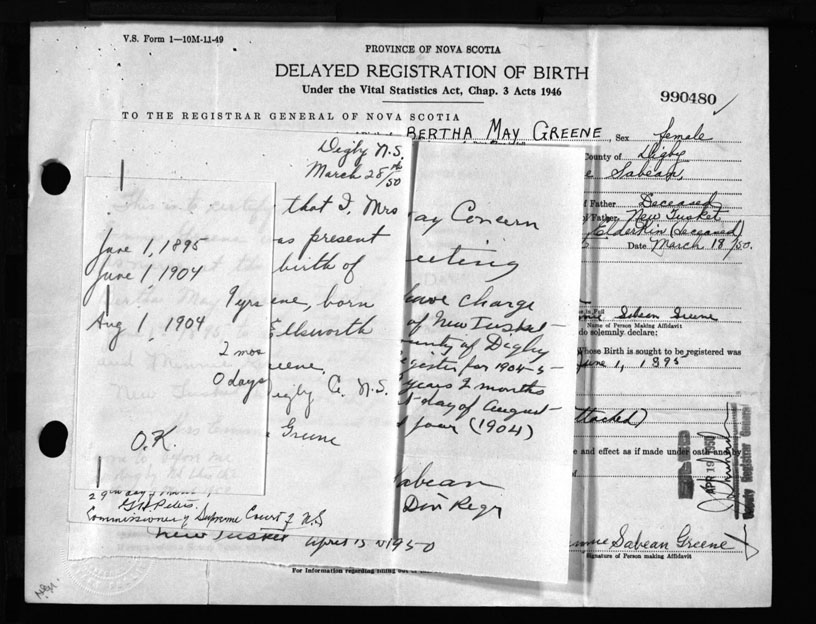 V.S. Form 1—10M-11-49
PROVINCE OF NOVA SCOTIA
DELAYED REGISTRATION OF BIRTH
Under the Vital Statistics Act, Chap. 3 Acts 1946
990480
TO THE REGISTRAR GENERAL OF NOVA SCOTIA
BERTHA MAY GREENE, Sex female
County of Digby
Sabean,
of Father Deceased
of Father, New Tusket
Elderkin (deceased)
Date March 18/50.
Name of Person Making Affidavit
do solemnly declare:
whose Birth is sought to be registered was
June 1, 1895
attached)
and effect as if made under oath and by
APR 19 1950
Deputy Registrar General
Sabean Greene
Signature of Person making Affidavit
Digby N.S.
March 28th/50
This is to certify that I, Mrs
was present
at the birth of
born
Ellsworth
Digby Co. N.S.
Greene
29th day of March 1950
Commissioner of Supreme Court of N.S
June 1, 1895
June 1, 1904
9 yrs
Aug 1, 1904
2 mos
0 days
O.K.
may Concern
Greeting
have charge
of New Tusket
County of Digby
Register, for 1904-5-
years 2 months
day of August
four (1904)
Sabean
Div Regr
New Tusket April 15 1950
For information regarding filling out